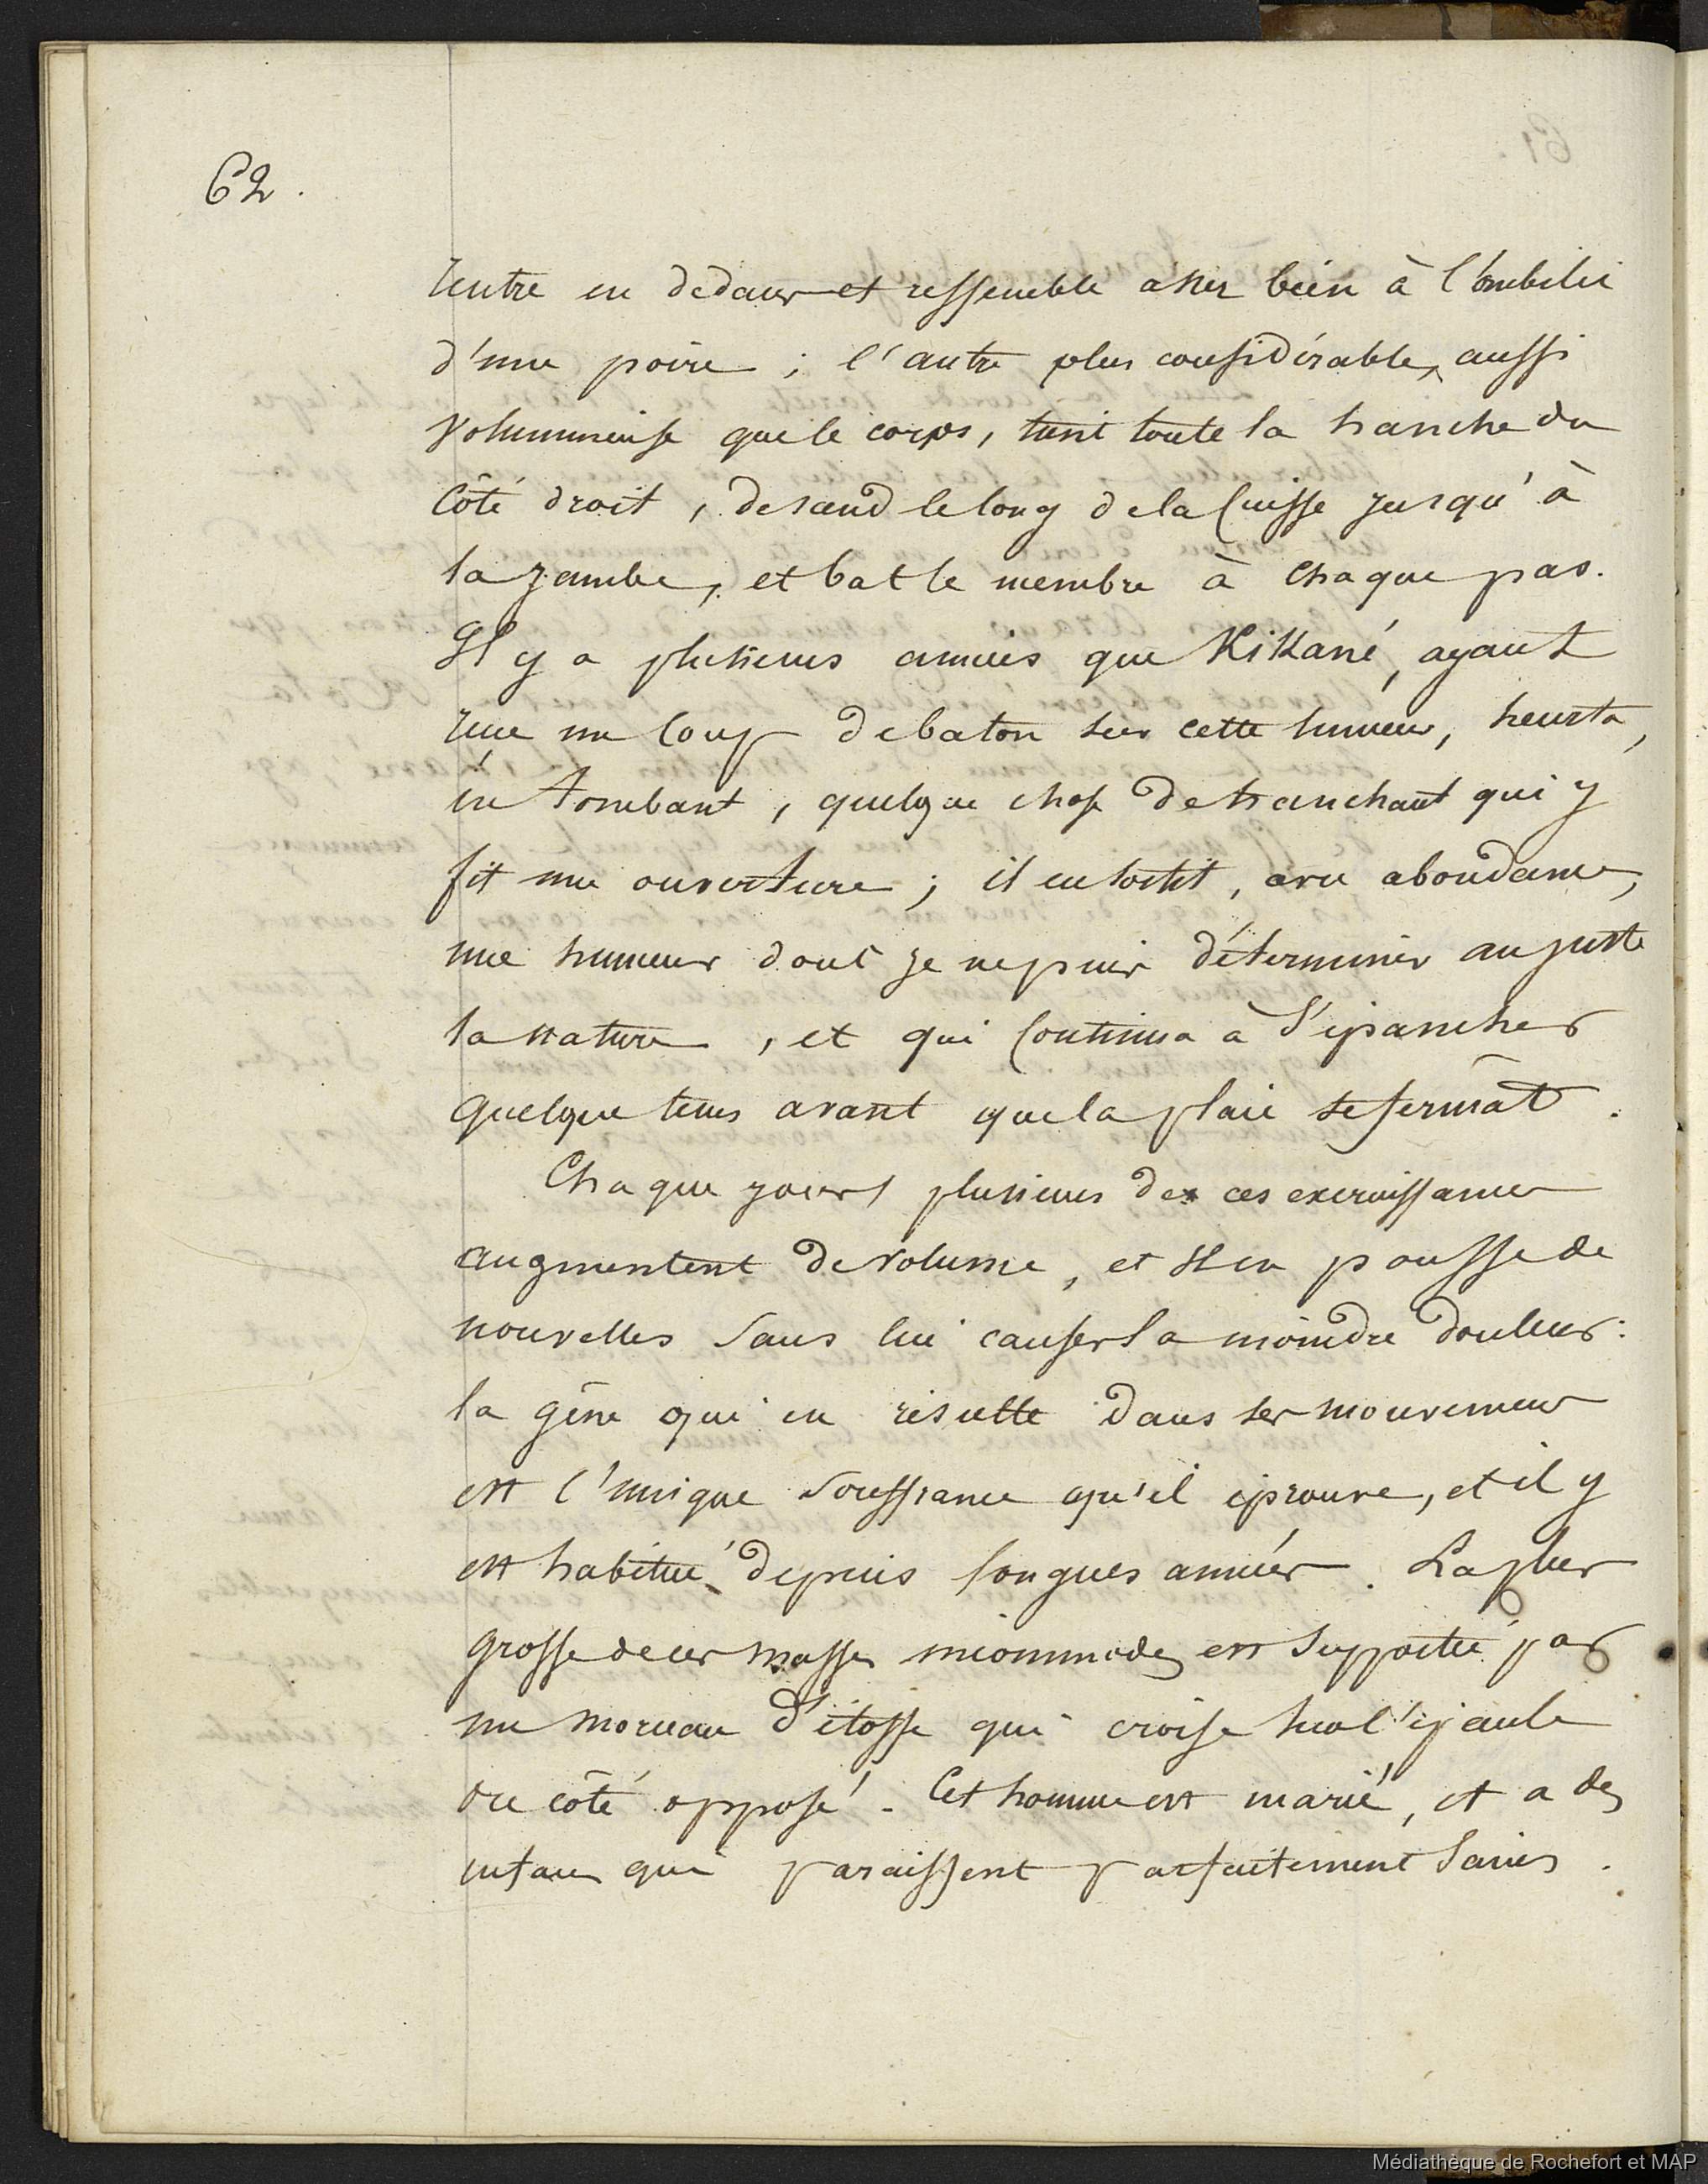 62.
rentre en dedans et ressemble assez bien à l'ombilic
d'une poire ; l'autre plus considérable, aussi
volumineuse que le corps, tient toute la hanche du
côté droit, descend le long de la cuisse jusqu'à
la jambe, et bat le membre à chaque pas.
Il y a plusieurs années que Kikané, ayant
reçu un coup de baton sur cette tumeur, heurta,
en tombant, quelque chose de tranchant qui y
fit une ouverture ; il en sortit, avec abondance,
une humeur dont je ne puis déterminer au juste
la nature, et qui continua à s'épancher
quelque tems avant que la plaie se fermât.
Chaque jour plusieurs de ces excroissances
augmentent de volume, et il en pousse de
nouvelles sans lui causer la moindre douleur :
la gêne qui en résulte dans ses mouvemens
est l'unique souffrance qu'il éprouve, et il y
est habitué depuis longues années. La plus
grosse de ces masses incommodes est supportée par
un morceau d'étoffe qui croise sur l'épaule
du côté opposé. Cet homme est marié, et a des
enfans qui paraissent parfaitement sains.
Médiathèque de Rochefort et MAP